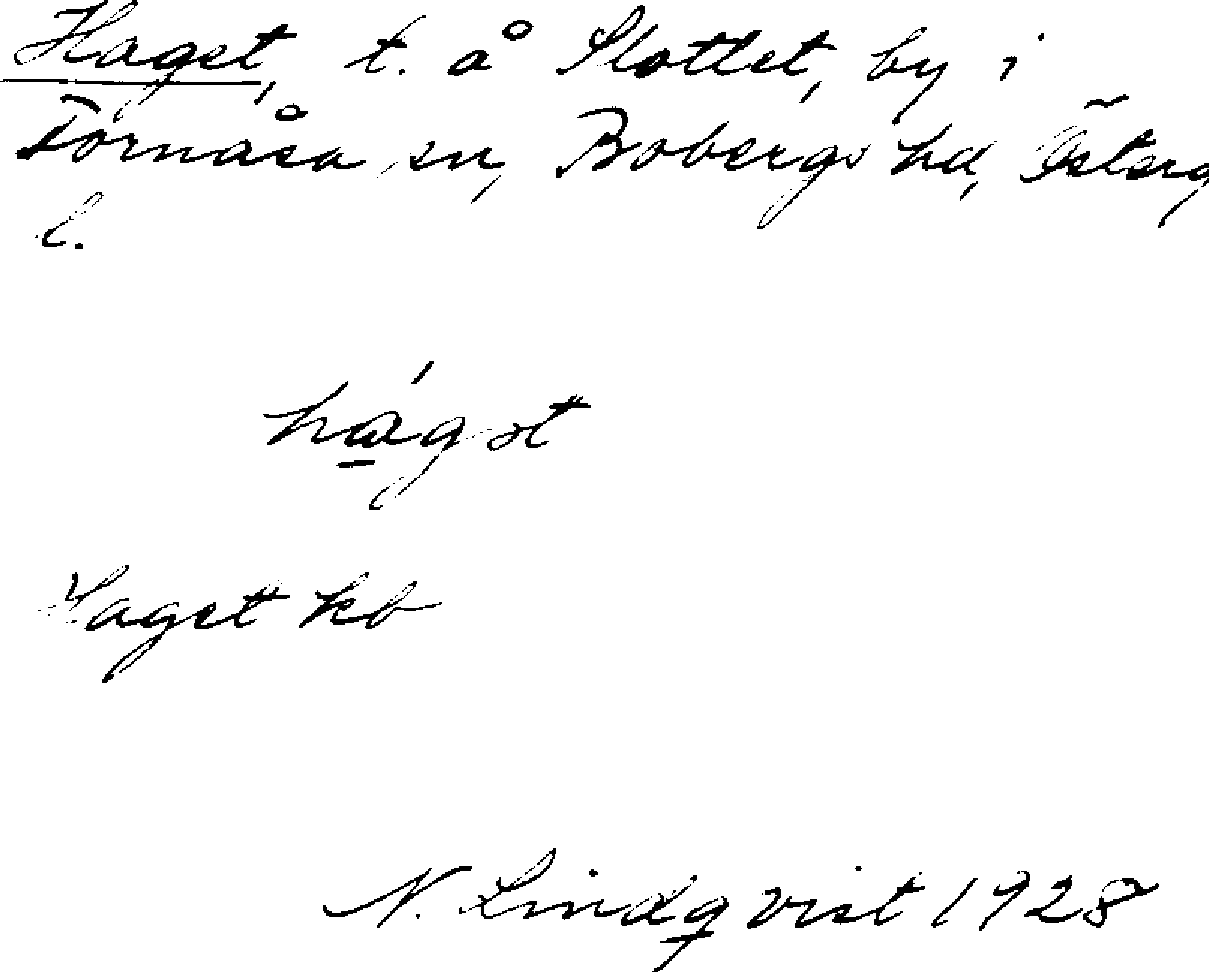 Haget, t. å Slottet, by i
Fornåsa sn, Bobergs hd, Österg
l.
hágət
Haget kb
N. Lindqvist 1928